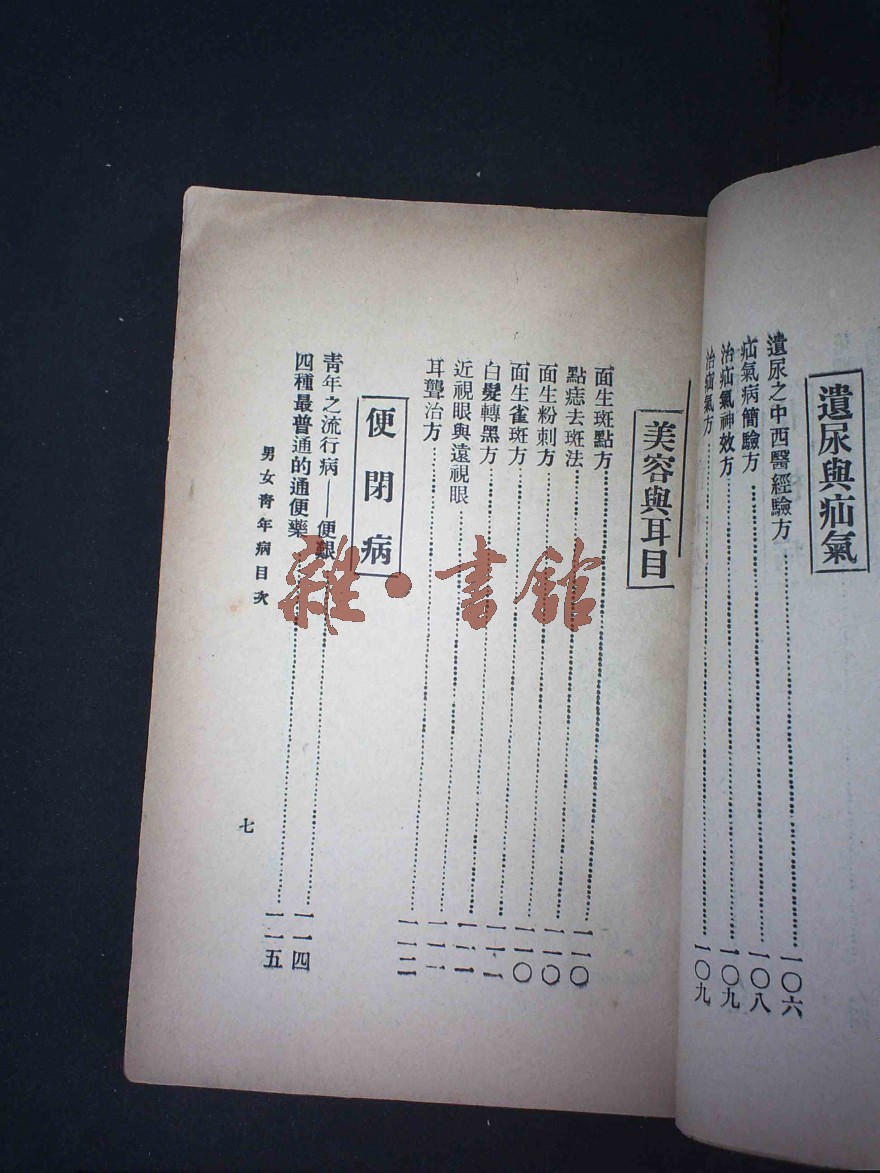 遺尿與疝氣
遺尿之中西醫經驗方……一〇六
疝氣病簡驗方……一〇八
治疝氣神效方……一〇九
治疝氣方……一〇九
美容與耳目
面生斑點方……一一〇
點痣去斑法……一一〇
面生粉刺方……一一〇
面生雀斑方……一一一
白髮轉黑方……一一一
近視眼與遠視眼……一一一
耳聾治方……一一二
便閉病
青年之流行病——便艱……一一四
四種最普通的通便藥……一一五
男女青年病目次
七
雜·書館